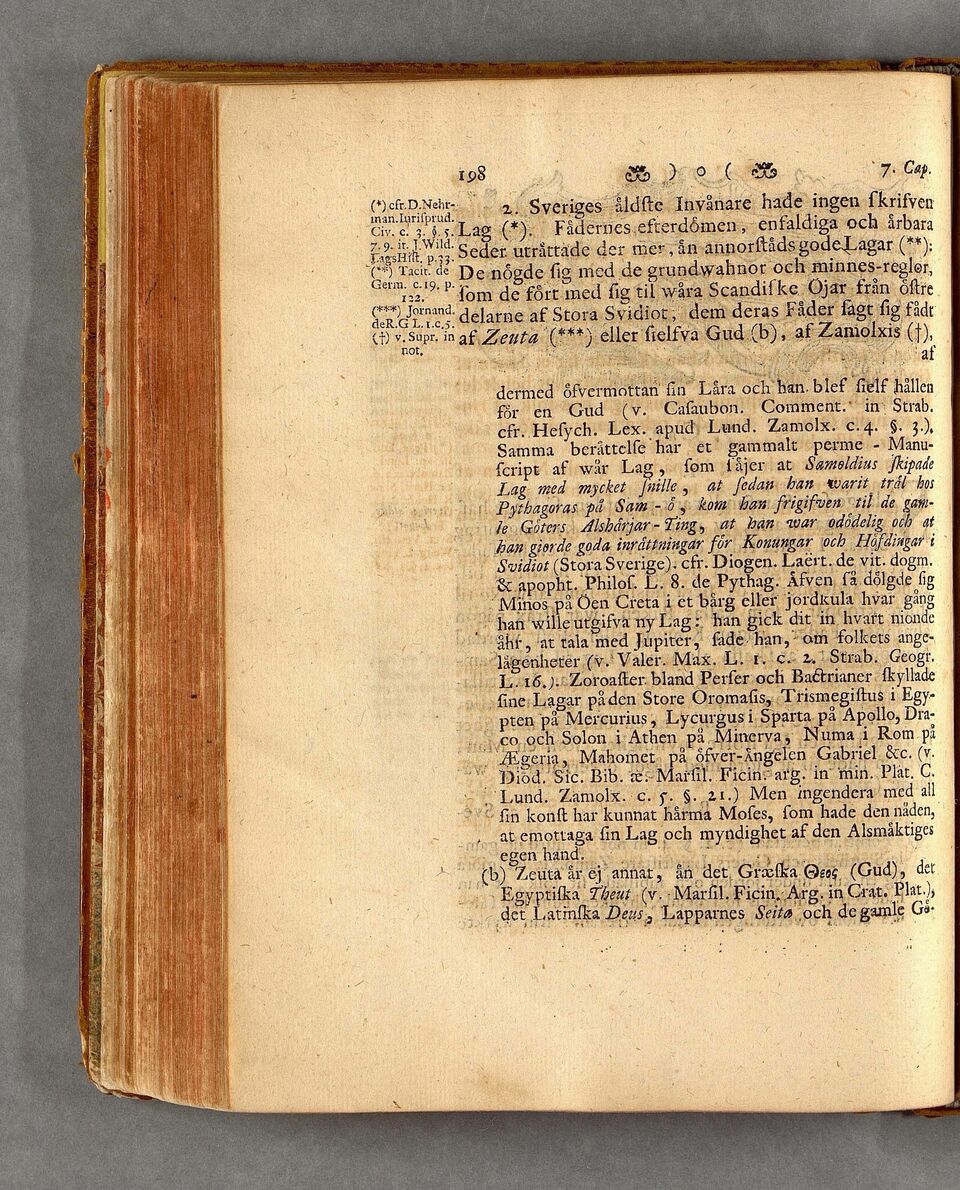 198 ) o ( 7. Cap.
(*) cfr. D. Nehr-
man. Iurisprud.
Civ. c. 3. §. 5.
7. 9. it. J. Wild.
LagsHist. p. 33.
(**) Tacit. de
Germ. c. 19. p.
122.
(***) Jornand.
deR.G L. 1. c. 5.
(†) v. Supr. in
not.
2. Sveriges åldſte Invånare hade ingen ſkrifven
Lag (*). Fådernes efterdömen, enfaldiga och årbara
Seder utråttade der mer, ån annorſtåds gode Lagar (**);
De nögde ſig med de grundwahnor och minnes-regler,
ſom de fört med ſig til wåra Scandiſke Öjar från öſtre
delarne af Stora Svidiot, dem deras Fåder ſagt ſig fådt
af Zeuta (***) eller ſielfva Gud (b), af Zamolxis (†),
af
dermed öfvermottan ſin Låra och han blef ſielf hållen
för en Gud (v. Caſaubon. Comment. in Strab.
cfr. Heſych. Lex. apud Lund. Zamolx. c. 4. §. 3.).
Samma beråttelſe har et gammalt perme - Manu-
ſcript af wår Lag, ſom ſåjer at Samoldius ſkipade
Lag med mycket ſnille, at ſedan han warit trål hos
Pythagoras på Sam - ö, kom han frigifven til de gam-
le Göters Alshårjar-Ting, at han war odödelig och at
han giorde goda inråttningar för Konungar och Höfdingar i
Svidiot (Stora Sverige). cfr. Diogen. Laërt. de vit. dogm.
& apopht. Philoſ. L. 8. de Pythag. Åfven ſå dölgde ſig
Minos på Öen Creta i et bårg eller jordkula hvar gång
han wille utgifva ny Lag: han gick dit in hvart nionde
åhr, at tala med Jupiter, ſade han, om folkets ange-
lågenheter (v. Valer. Max. L. 1. c. 2. Strab. Geogr.
L. 16.). Zoroaſter bland Perſer och Bactrianer ſkyllade
ſine Lagar på den Store Oromaſis, Trismegiſtus i Egy-
pten på Mercurius, Lycurgus i Sparta på Apollo, Dra-
co och Solon i Athen på Minerva, Numa i Rom på
Ægeria, Mahomet på öfver-Ångelen Gabriel &c. (v.
Diod. Sic. Bib. æ. Marſil. Ficin. arg. in min. Plat. C.
Lund. Zamolx. c. 5. §. 21.) Men ingendera med all
ſin konſt har kunnat hårma Moſes, ſom hade den nåden,
at emottaga ſin Lag och myndighet af den Alsmåktiges
egen hand.
(b) Zeuta år ej annat, ån det Græſka Θεος (Gud), det
Egyptiſka Theut (v. Marſil. Ficin. Arg. in Crat. Plat.),
det Latinſka Deus, Lapparnes Seita och de gamle Gö-